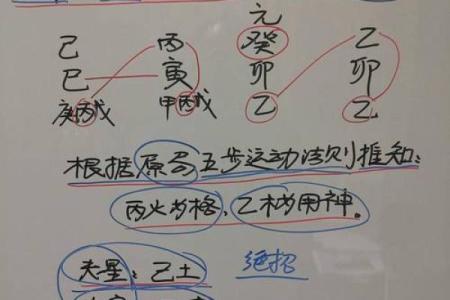 元
己 丙 癸 乙
巳 寅 卯 卯
庚丙戊 甲丙戊 乙 乙
根据原局五步运动法则推知:
丙火为格、乙木为用神。
夫星:己土 绝招